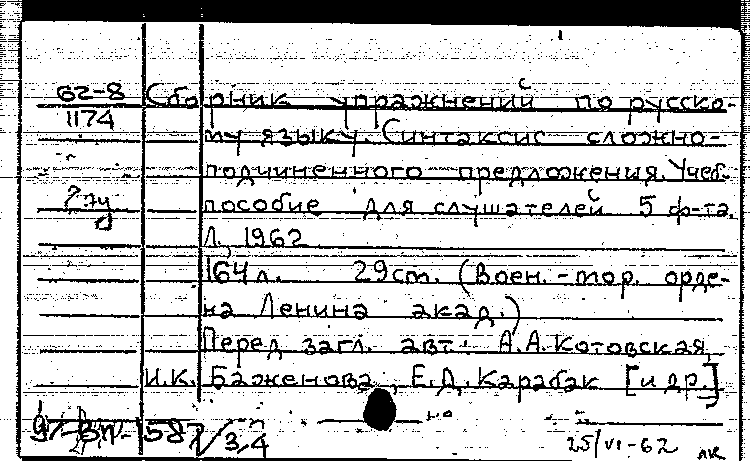 62-8 Сборник упражнений по русско-
1174 му языку. Синтаксис сложно-
подчиненного предложения. Учеб.
пособие для слушателей 5 ф-та.
Л., 1962
164 л. 29 cm. (Воен.-мор. орде-
на Ленина акад.)
Перед загл. авт.: А.А. Котовская,
И.К. Баженова, Е.Д. Карабак [и др.]
25/VI-62